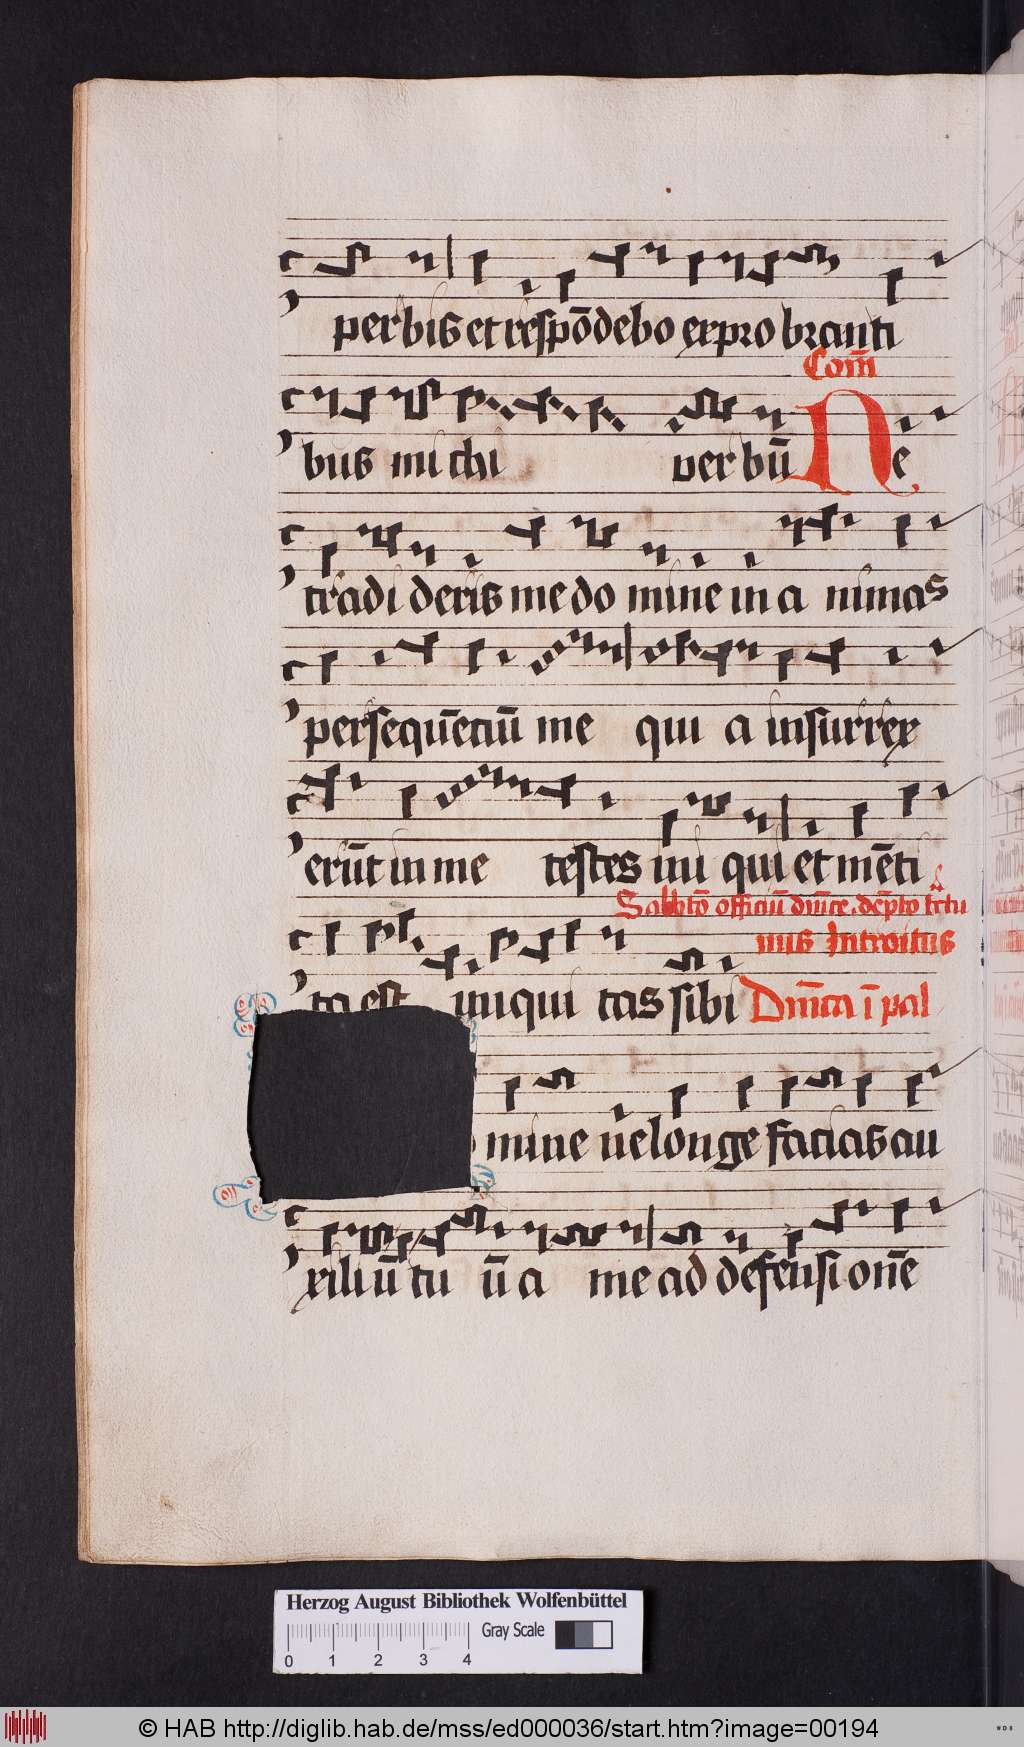 perbis et respōdebo expro branti
Com̄
bus mi chi verbū Ne
tradi deris me do mine in a nimas
persequētiū me qui a insurrex
erūt in me testes ini qui et mēti
Sabb̄to officiū dn̄ice
nus Introitus
ta est iniqui tas sibi Dn̄ica ī pal
mine ne longe facias au
xili ū tu ū a me ad defensi onē
Herzog August Bibliothek Wolfenbüttel
Gray Scale
0 1 2 3 4
© HAB http://diglib.hab.de/mss/ed000036/start.htm?image=00194